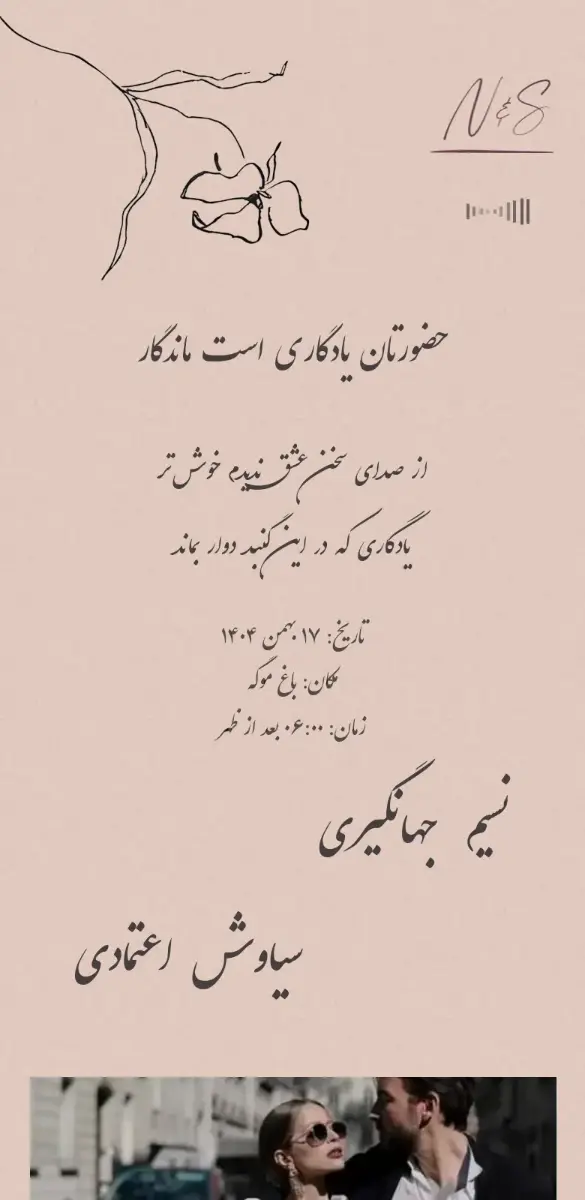 N&S
حضورتان یادگاری است ماندگار
از صدای سخن عشق ندیدم خوش‌تر
یادگاری که در این گنبد دوار بماند
تاریخ: ۱۷ بهمن ۱۴۰۴
مکان: باغ موگه
زمان: ۰۶:۰۰ بعد از ظهر
نسیم جهانگیری
سیاوش اعتمادی